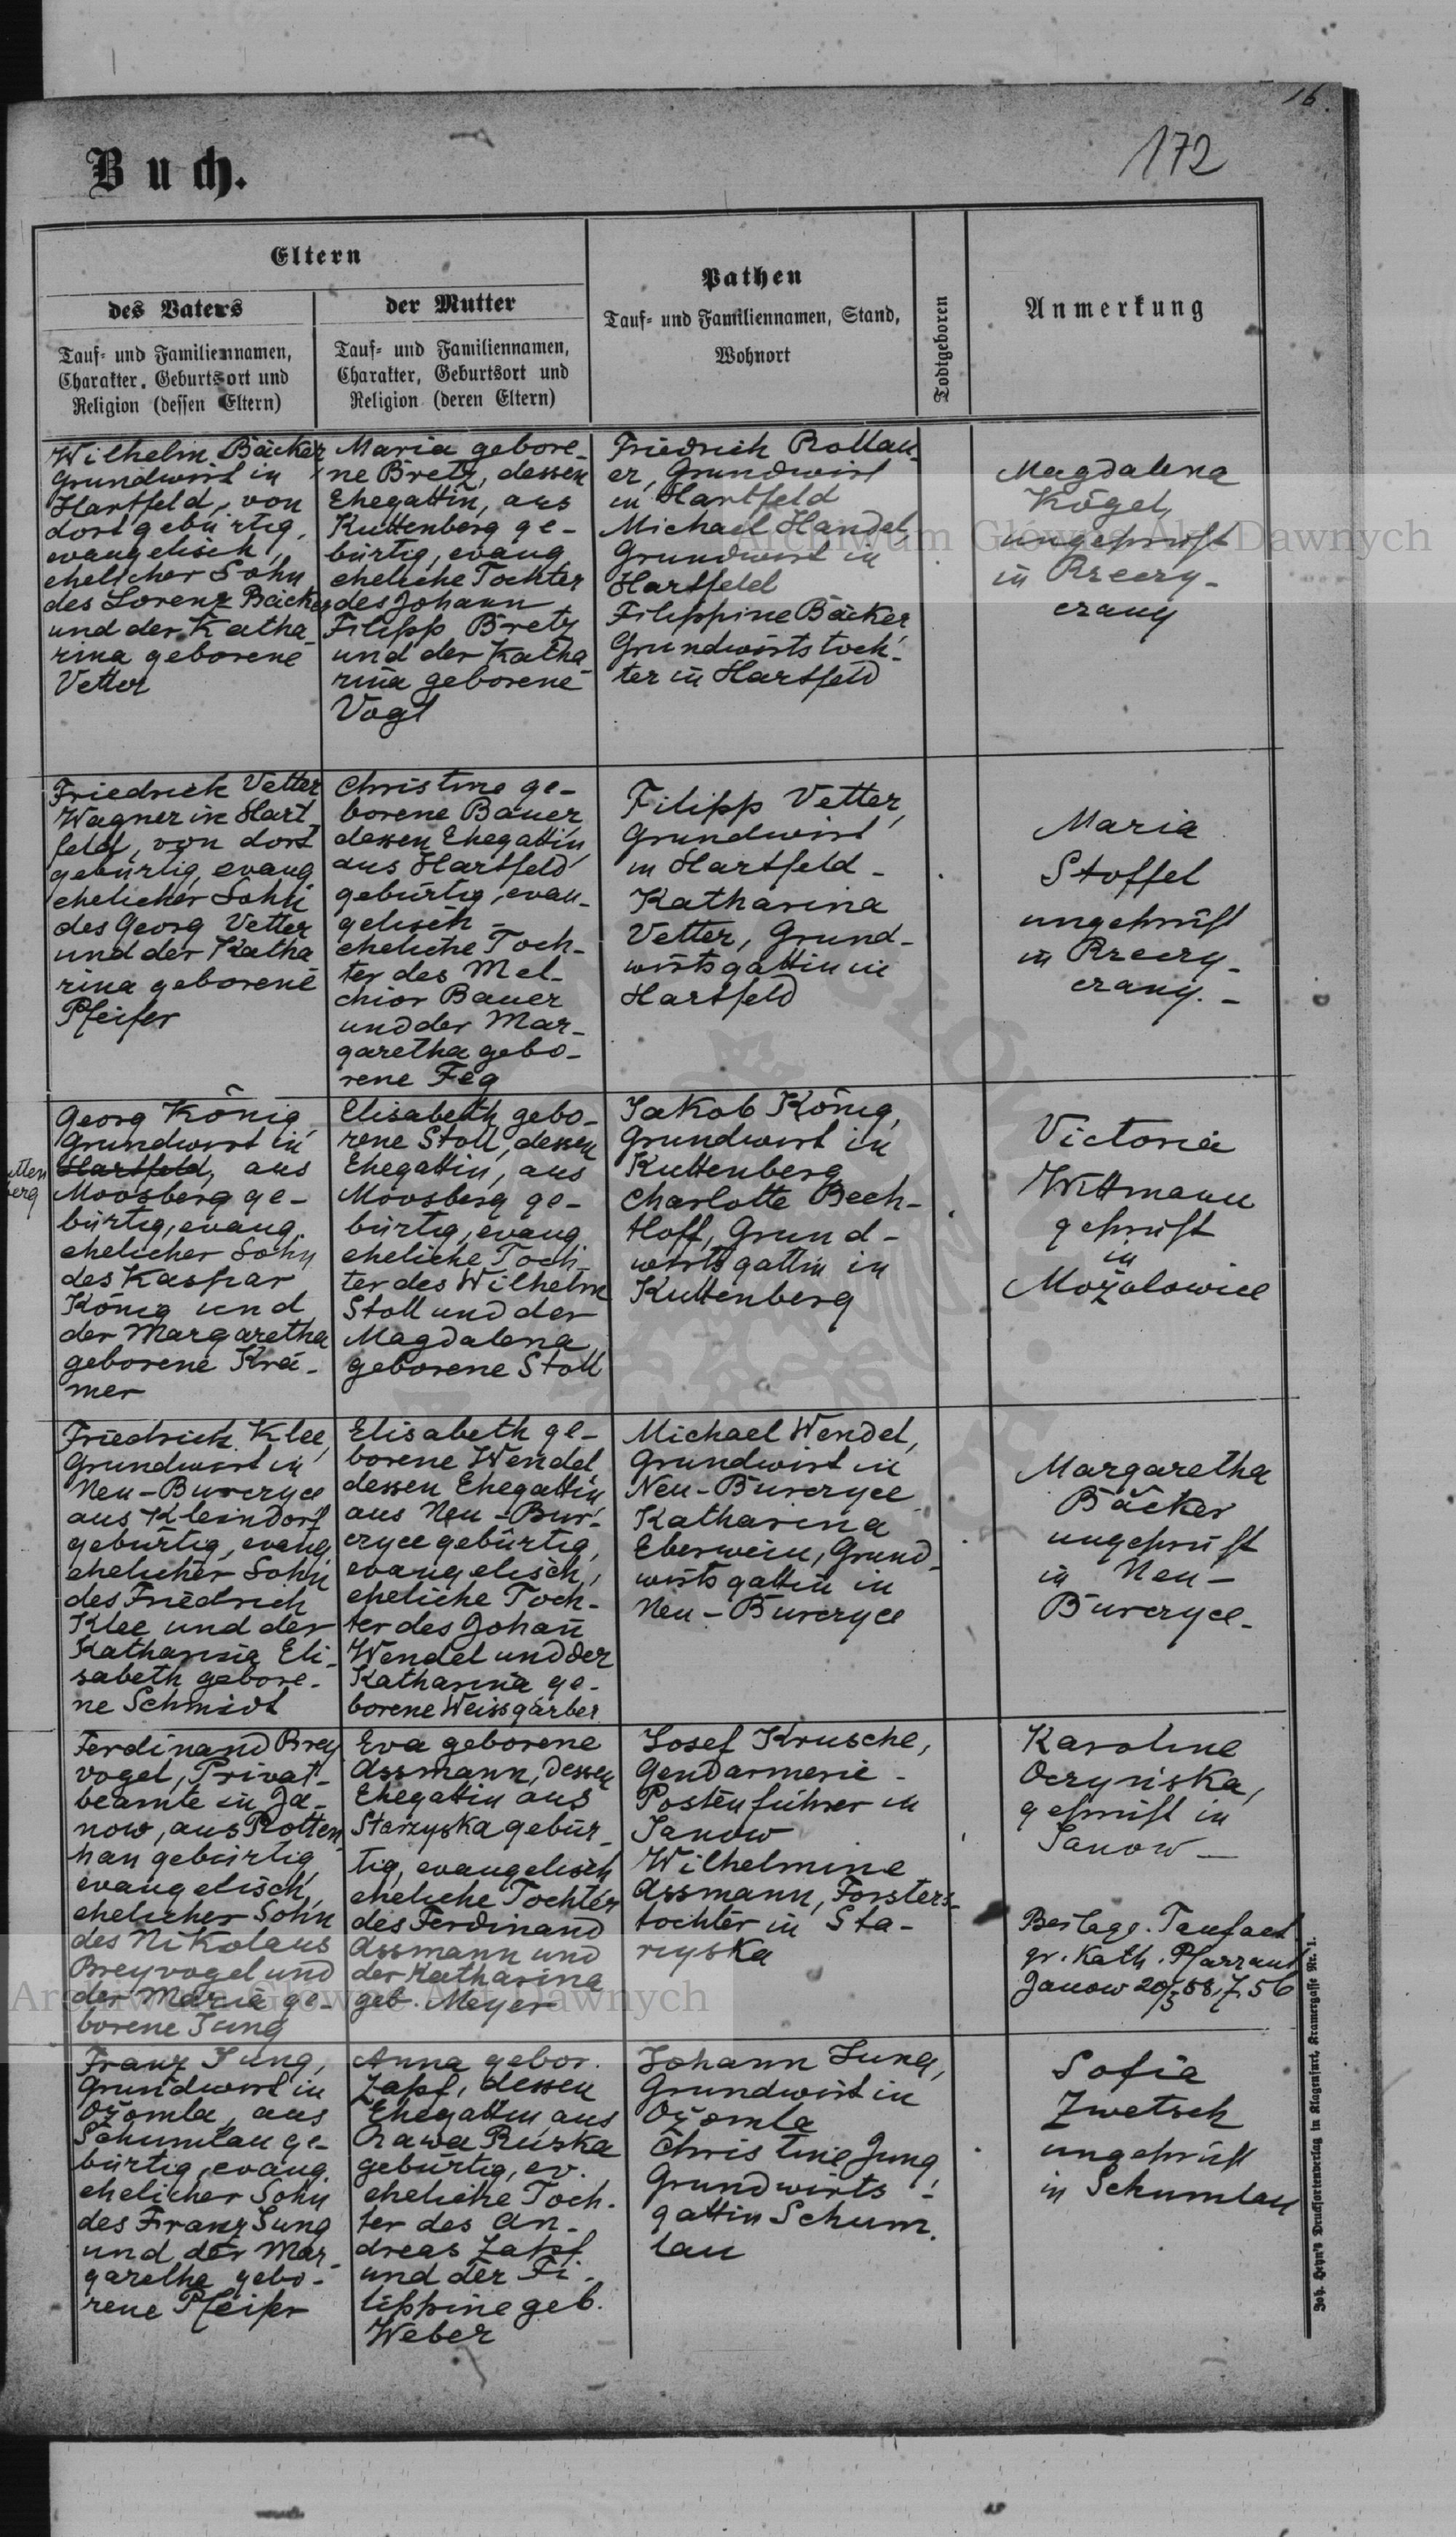 16.
172
Buch.
Eltern
des Vaters
Tauf- und Familiennamen,
Charakter, Geburtsort und
Religion (dessen Eltern)
der Mutter
Tauf- und Familiennamen,
Charakter, Geburtsort und
Religion (deren Eltern)
Pathen
Tauf- und Familiennamen, Stand,
Wohnort
Todtgeboren
Anmerkung
Wilhelm Bäcker
Grundwirt in
Hartfeld, von
dort gebürtig,
evangelisch,
ehelicher Sohn
des Lorenz Bäcker
und der Katha-
rina geborene
Vetter
Maria gebore-
ne Bretz, dessen
Ehegattin, aus
Kuttenberg ge-
bürtig, evang.
eheliche Tochter
des Johann
Filipp Bretz
und der Katha-
rina geborene
Vogt
Friedrich Rollau-
er, Grundwirt
in Hartfeld
Michael Handel,
Grundwirt in
Hartfeld
Filippine Bäcker
Grundwirtstoch-
ter in Hartfeld
Magdalena
Kögel,
ungeprüft
in Rzeczy-
czany
Friedrich Vetter
Wagner in Hart-
feld, von dort
gebürtig, evang
ehelicher Sohn
des Georg Vetter
und der Katha
rina geborene
Pfeifer
Christine ge-
borene Bauer
dessen Ehegattin,
aus Hartfeld
gebürtig, evan-
gelisch -
eheliche Toch-
ter des Mel-
chior Bauer
und der Mar-
garetha gebo-
rene Feg
Filipp Vetter,
Grundwirt
in Hartfeld -
Katharina
Vetter, Grund-
wirtsgattin in
Hartfeld
Maria
Stoffel
ungeprüft
in Rzeczy-
czany. -
Georg König,
Grundwirt in
Hartfeld, aus
Moosberg ge-
bürtig, evang.
ehelicher Sohn
des Kaspar
König und
der Margaretha
geborene Krä-
mer
utten
berg
Elisabeth gebo-
rene Stoll, dessen
Ehegattin, aus
Moosberg ge-
bürtig, evang
eheliche Toch-
ter des Wilhelm
Stoll und der
Magdalena
geborene Stoll
Jakob König,
Grundwirt in
Kuttenberg
Charlotte Bech-
tloff, Grund-
wirtsgattin in
Kuttenberg
Victoria
Wittmann
geprüft
in
Mozolowice
Friedrich Klee,
Grundwirt in
Neu-Burczyce
aus Kleindorf
gebürtig, evang
ehelicher Sohn
des Friedrich
Klee und der
Katharina Eli-
sabeth gebore-
ne Schmidt
Elisabeth ge-
borene Wendel,
dessen Ehegattin,
aus Neu-Bur-
czyce gebürtig,
evangelisch,
eheliche Toch-
ter des Johan̅
Wendel und der
Katharina ge-
borene Weissgärber
Michael Wendel,
Grundwirt in
Neu-Burczyce
Katharina
Eberwein, Grund-
wirtsgattin in
Neu-Burczyce
Margaretha
Bäcker
ungeprüft
in Neu-
Burczyce.
Ferdinand Brey
vogel, Privat-
beamte in Ja-
now, aus Rotten-
han gebürtig
evangelisch,
ehelicher Sohn
des Nikolaus
Breyvogel und
der Maria ge-
borene Jung
Eva geborene
Assmann, dessen
Ehegattin aus
Starzyska gebür-
tig, evangelisch
eheliche Tochter
des Ferdinand
Assmann und
der Katharina
geb. Meyer
Josef Krusche,
Gendarmerie-
Postenführer in
Janow
Wilhelmine
Assmann, Försters-
tochter in Sta-
rzyska
Karoline
Oczyńska,
geprüft in
Janow -
Beilage. Taufact
gr. Kath. Pfarramt
Janow 20/5
Franz Jung,
Grundwirt in
Ożomla, aus
Schumlau ge-
bürtig, evang.
ehelicher Sohn
des Franz Jung
und der Mar-
garetha gebo-
rene Pfeifer
Anna gebor.
Zapf, dessen
Ehegattin aus
Rawa Ruska
gebürtig, ev.
eheliche Toch-
ter des An-
dreas Zapf
und der Fi-
lippine geb.
Weber
Johann Jung,
Grundwirt in
Ożomla
Christine Jung,
Grundwirts-
gattin Schum-
lau
Sofia
Zwetsch
ungeprüft
in Schumlau
Joh. Heyn's Drucksortenverlag in Klagenfurt, Kramergasse Nr. 1.
Archiwum Główne Akt Dawnych
Archiwum Główne Akt Dawnych